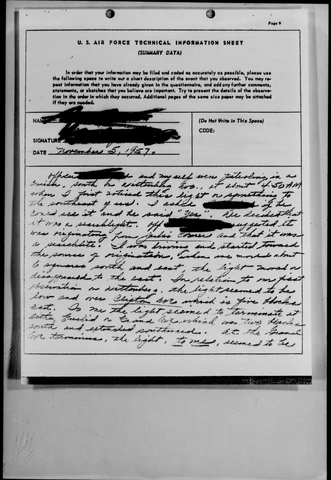 Page 9
U. S. AIR FORCE TECHNICAL INFORMATION SHEET
(SUMMARY DATA)
In order that your information may be filed and coded as accurately as possible, please
use the following space to write out a short description of the event that you observed. You may re-
peat information that you have already given in the questionnaire, and add any further comments,
statements, or sketches that you believe are important. Try to present the details of the observa-
tion in the order in which they occurred. Additional pages of the same size paper may be attached
if they are needed.
NAME
(Do Not Write in This Space)
CODE:
SIGNATURE
DATE November 5, 1957.
Officer and myself were patrolling in a
cruiser, south on Ave., at about 4:50 AM
when I first noticed this light or something to
the southeast of us. I asked if he
could see it and he said "Yes". We decided that
it was a searchlight. Off. suggested it
was originating from and that it was
a searchlight. I was driving and started toward
the source of origination, when we moved about
6 squares south and east, the light moved or
disappeared to the east. In relation to our first
observation on the light seemed to be
low and over Ave which is five blocks
east. To me the light seemed to terminate at
either Euclid or Grand Ave which was two blocks
south and extended southward. At the Grand
Ave terminus, the light, to me, seemed to be